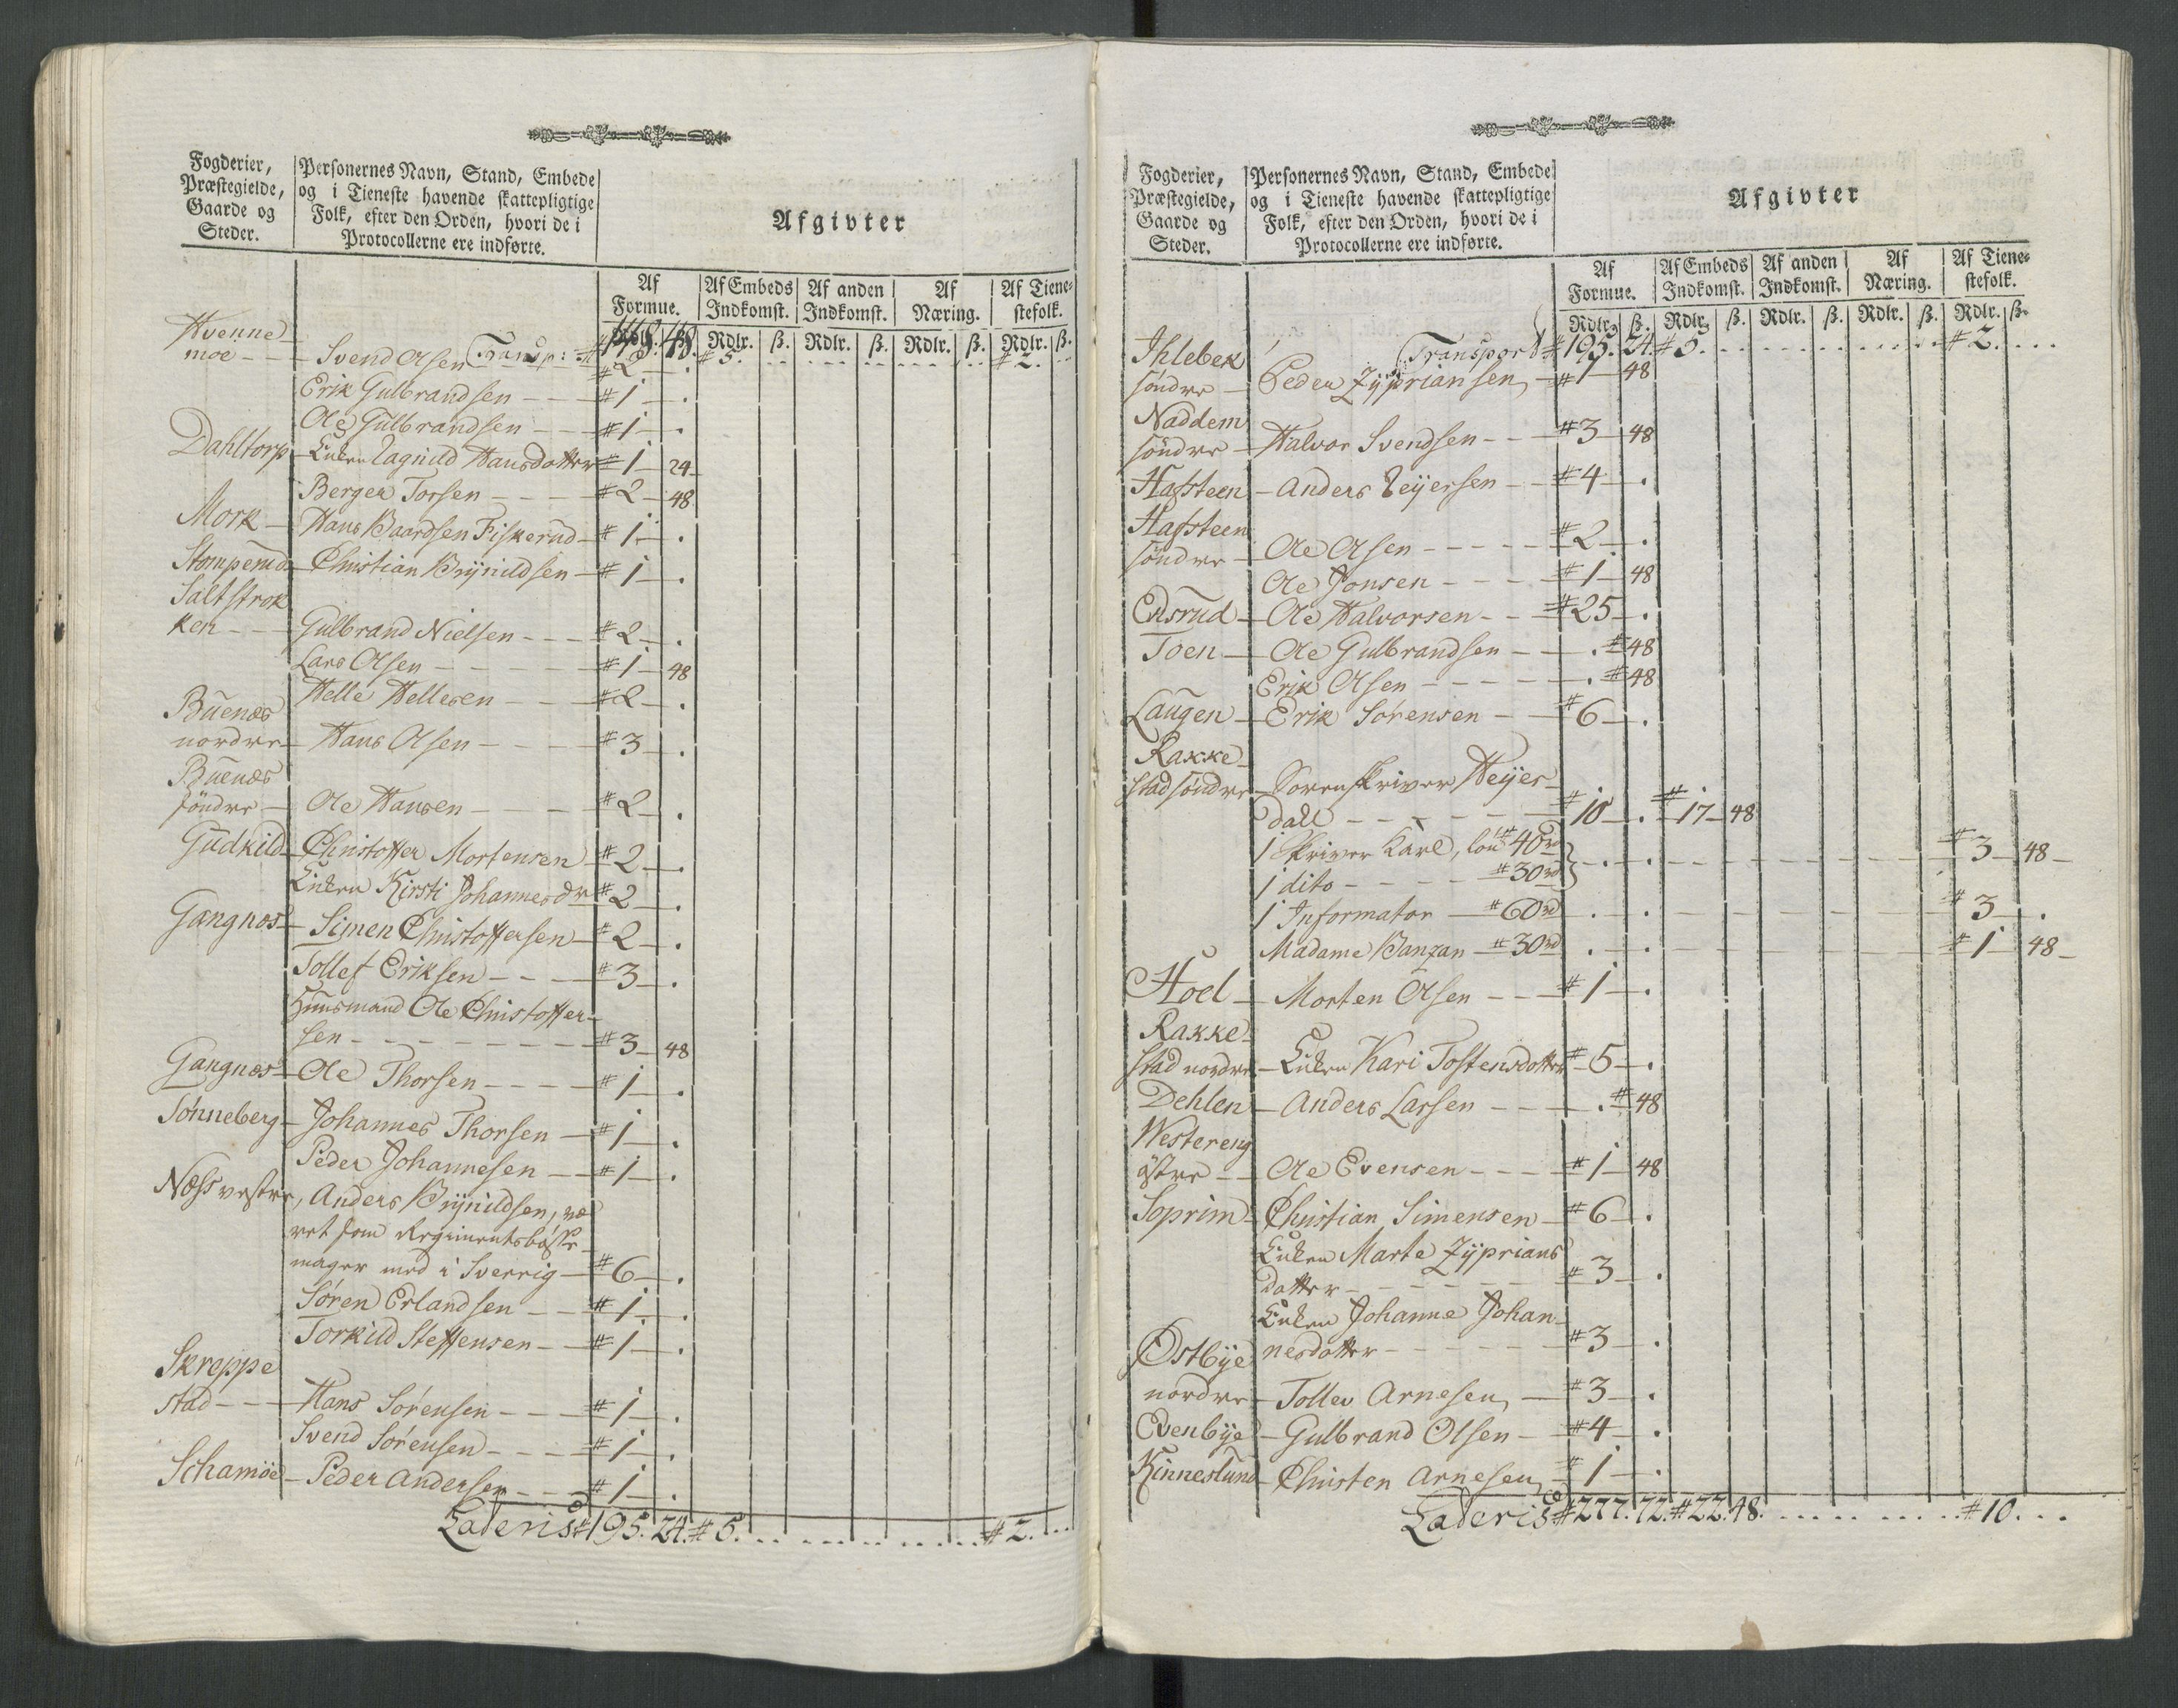 Fogderier,
Præstegielde,
Gaarde og
Steder.
Personernes Navn, Stand, Embede
og i Tieneste havende skattepligtige
Folk, efter den Orden, hvori de i
Protocollerne ere indførte.
Afgivter
Af Formue. Af Embeds Indkomst. Af anden Indkomst. Af Næring. Af Tienestefolk.
Rdlr. ß. Rdlr. ß. Rdlr. ß. Rdlr. ß.
Transp: # 148. 48. # 5. # 2.
Hvenne
moe - - Svend Olsen # 2 - .
Erik Gulbrandsen - - # 1 - .
Ole Gulbrandsen - - # 1 - .
Dahltorp - Enken Ragnild Hansdatter # 1 - 24
Berger Torsen - - - # 2 - 48
Mork - Hans Baardsen Fiskerud - # 1 - .
Stomperud - Christian Brÿnildsen - # 1 - .
Saltstrok
ken - - Gulbrand Nielsen - - - # 2 - .
Lars Olsen - - - - # 1 - 48
Helle Hellesen - - - # 2 - .
Buenæs
nordre - Hans Olsen - - - # 3 - .
Buenæs
söndre - Ole Hansen - - - # 2 - .
Gudkild - Christoffer Mortensen # 2 - .
Enken Kirsti Johannesdr # 2 - .
Gangnæs - Simen Christoffersen - # 2 - .
Tollef Eriksen - - - # 3 - .
Huusmand Ole Christoffer-
sen - - - - - - - # 3 - 48
Gangnæs - Ole Thorsen - - - - # 1 - .
Tönneberg - Johannes Thorsen - # 1 - .
Peder Johannesen - - # 1 - .
Næss vestre, Anders Brÿnildsen, væ
ret som Regimentsbösse-
mager med i Sverrig - # 6 - .
Sören Erlandsen - - # 1 - .
Torkild Steffensen - - # 1 - .
Skreppe
stad - - - Hans Sörensen - - - # 1 - .
Svend Sörensen - - - # 1 - .
Schamöe - Peder Andersen - - - # 1 - .
Lateris # 195. 24. # 5. # 2.
Fogderier,
Præstegielde,
Gaarde og
Steder.
Personernes Navn, Stand, Embede
og i Tieneste havende skattepligtige
Folk, efter den Orden, hvori de i
Protocollerne ere indførte.
Afgivter
Af Formue. Af Embeds Indkomst. Af anden Indkomst. Af Næring. Af Tienestefolk.
Rdlr. ß. Rdlr. ß. Rdlr. ß. Rdlr. ß. Rdlr. ß.
Transport # 195. 24. # 5. # 2.
Ihlebek
söndre - Peder Zÿpriansen - # 1 - 48
Naddem
söndre - Halvor Svendsen - - # 3 - 48
Hafsteen - Anders Reÿersen - - # 4 - .
Hafsteen
söndre - Ole Olsen - - - - - # 2 - .
Ole Jonsen - - - # 1 - 48
Edsrud - Ole Halvorsen - - # 25 - .
Toen - Ole Gulbrandsen - - . # 48
Erik Olsen - - - - - . # 48
Laugen - Erik Sörensen - - # 6 - .
Rakke-
stad söndre - Sorenskriver Heÿer-
dall - - - - - - # 10 - . # 17 - 48
1 Skriver Karl, lön # 40 rd
1 dito - - - - # 30 rd - . - # 3 - 48
1 Informator - # 60 rd . - . # 3 - .
Madame Banzan - # 30 rd . - . # 1 - 48
Hoel - Morten Olsen - - - # 1 - .
Rakke-
stad nordre - Enken Kari Tostensdotter # 5 - .
Dehlen - Anders Larsen - - - . # 48
Westereng
östre - - Ole Evensen - - - # 1 - 48
Soprim - Christian Simensen - # 6 - .
Enken Marte Zÿprians
datter - - - - - # 3 - .
Enken Johanne Johan-
nesdatter - - - - - # 3 - .
Østbÿe
nordre - Tollev Arnesen - # 3 - .
Evenbÿe - Gulbrand Olsen - # 4 - .
Kinneslund - Christen Arnesen - # 1 - .
Lateris # 277. 72. # 22. 48. # 10.